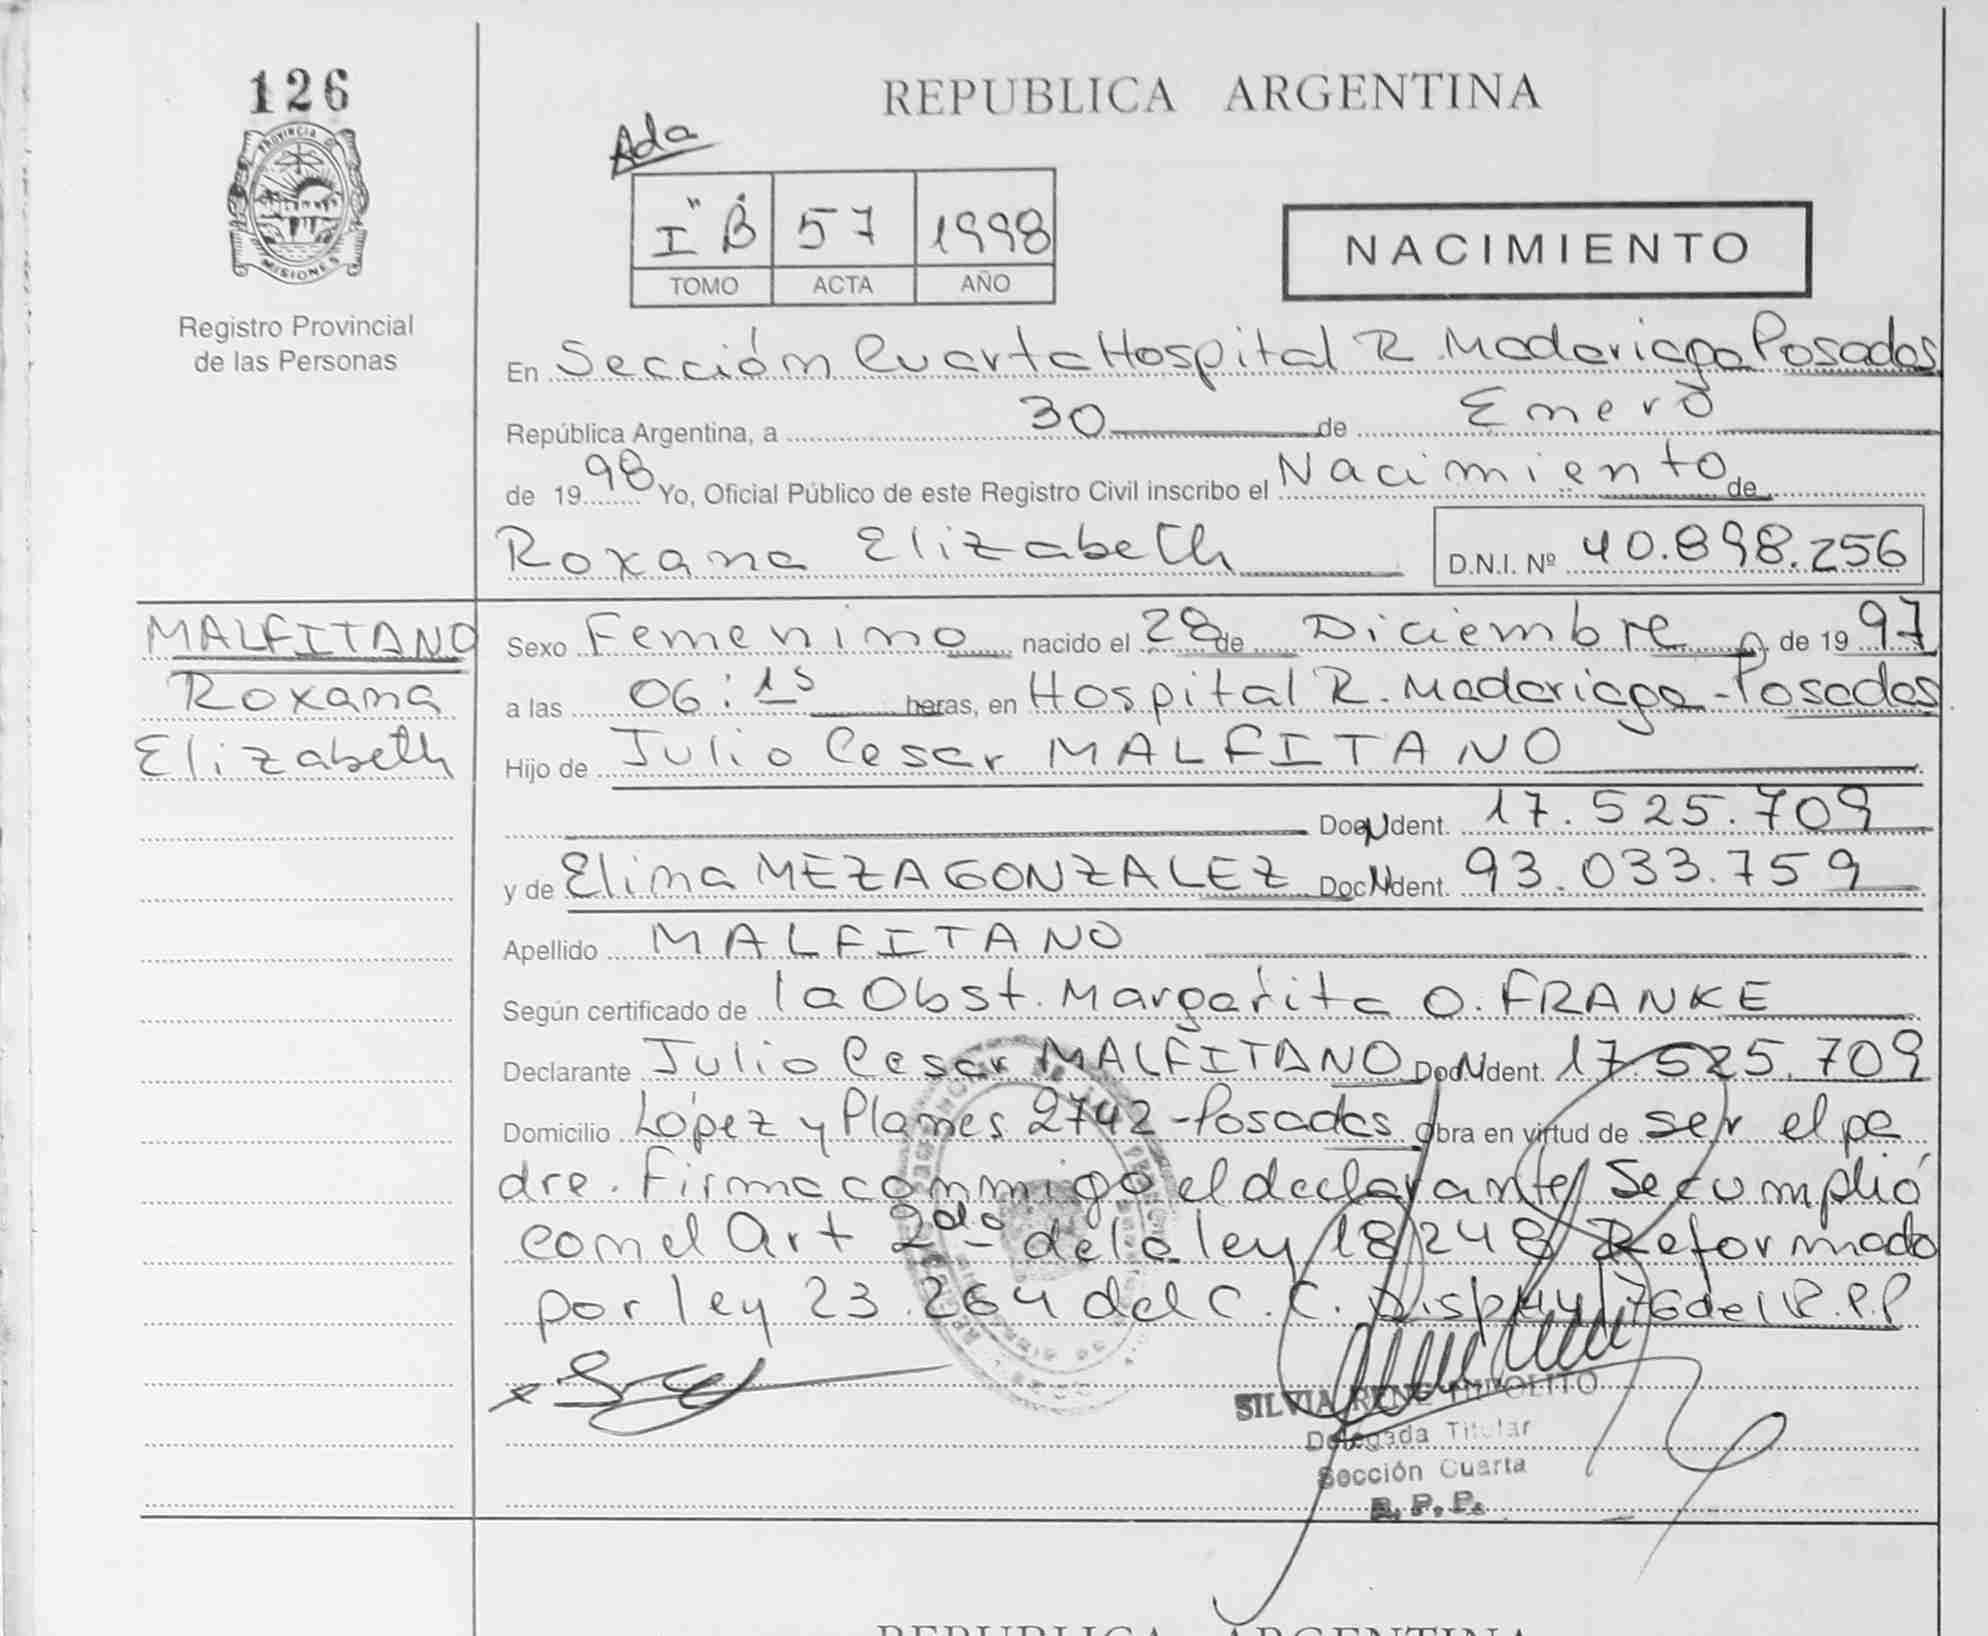 126
PROVINCIA DE
MISIONES
Registro Provincial
de las Personas
REPUBLICA ARGENTINA
Ada
I "B" 57 1998
TOMO ACTA AÑO
NACIMIENTO
En Sección Cuarta Hospital R. Madariaga Posadas
República Argentina, a 30 de Enero
de 1998 Yo, Oficial Público de este Registro Civil inscribo el Nacimiento de
Roxana Elizabeth D.N.I. Nº 40.898.256
MALFITANO
Roxana
Elizabeth
Sexo Femenino nacido el 28 de Diciembre de 1997
a las 06:15 horas, en Hospital R. Madariaga - Posadas
Hijo de Julio Cesar MALFITANO
Doc N Ident. 17.525.709
y de Elina MEZA GONZALEZ Doc N Ident. 93.033.759
Apellido MALFITANO
Según certificado de la Obst. Margarita O. FRANKE
Declarante Julio Cesar MALFITANO Doc N Ident. 17.525.709
Domicilio López y Planes 2742 - Posadas Obra en virtud de ser el pa
dre. Firma conmigo el declarante Se cumplió
con el Art 2do de la ley 18248 Reformado
por ley 23.264 del C.C. Disp 44/76 del R.P.P
SILVIA RENE HIPOLITO
Delegada Titular
Sección Cuarta
R. P. P.
REPUBLICA ARGENTINA